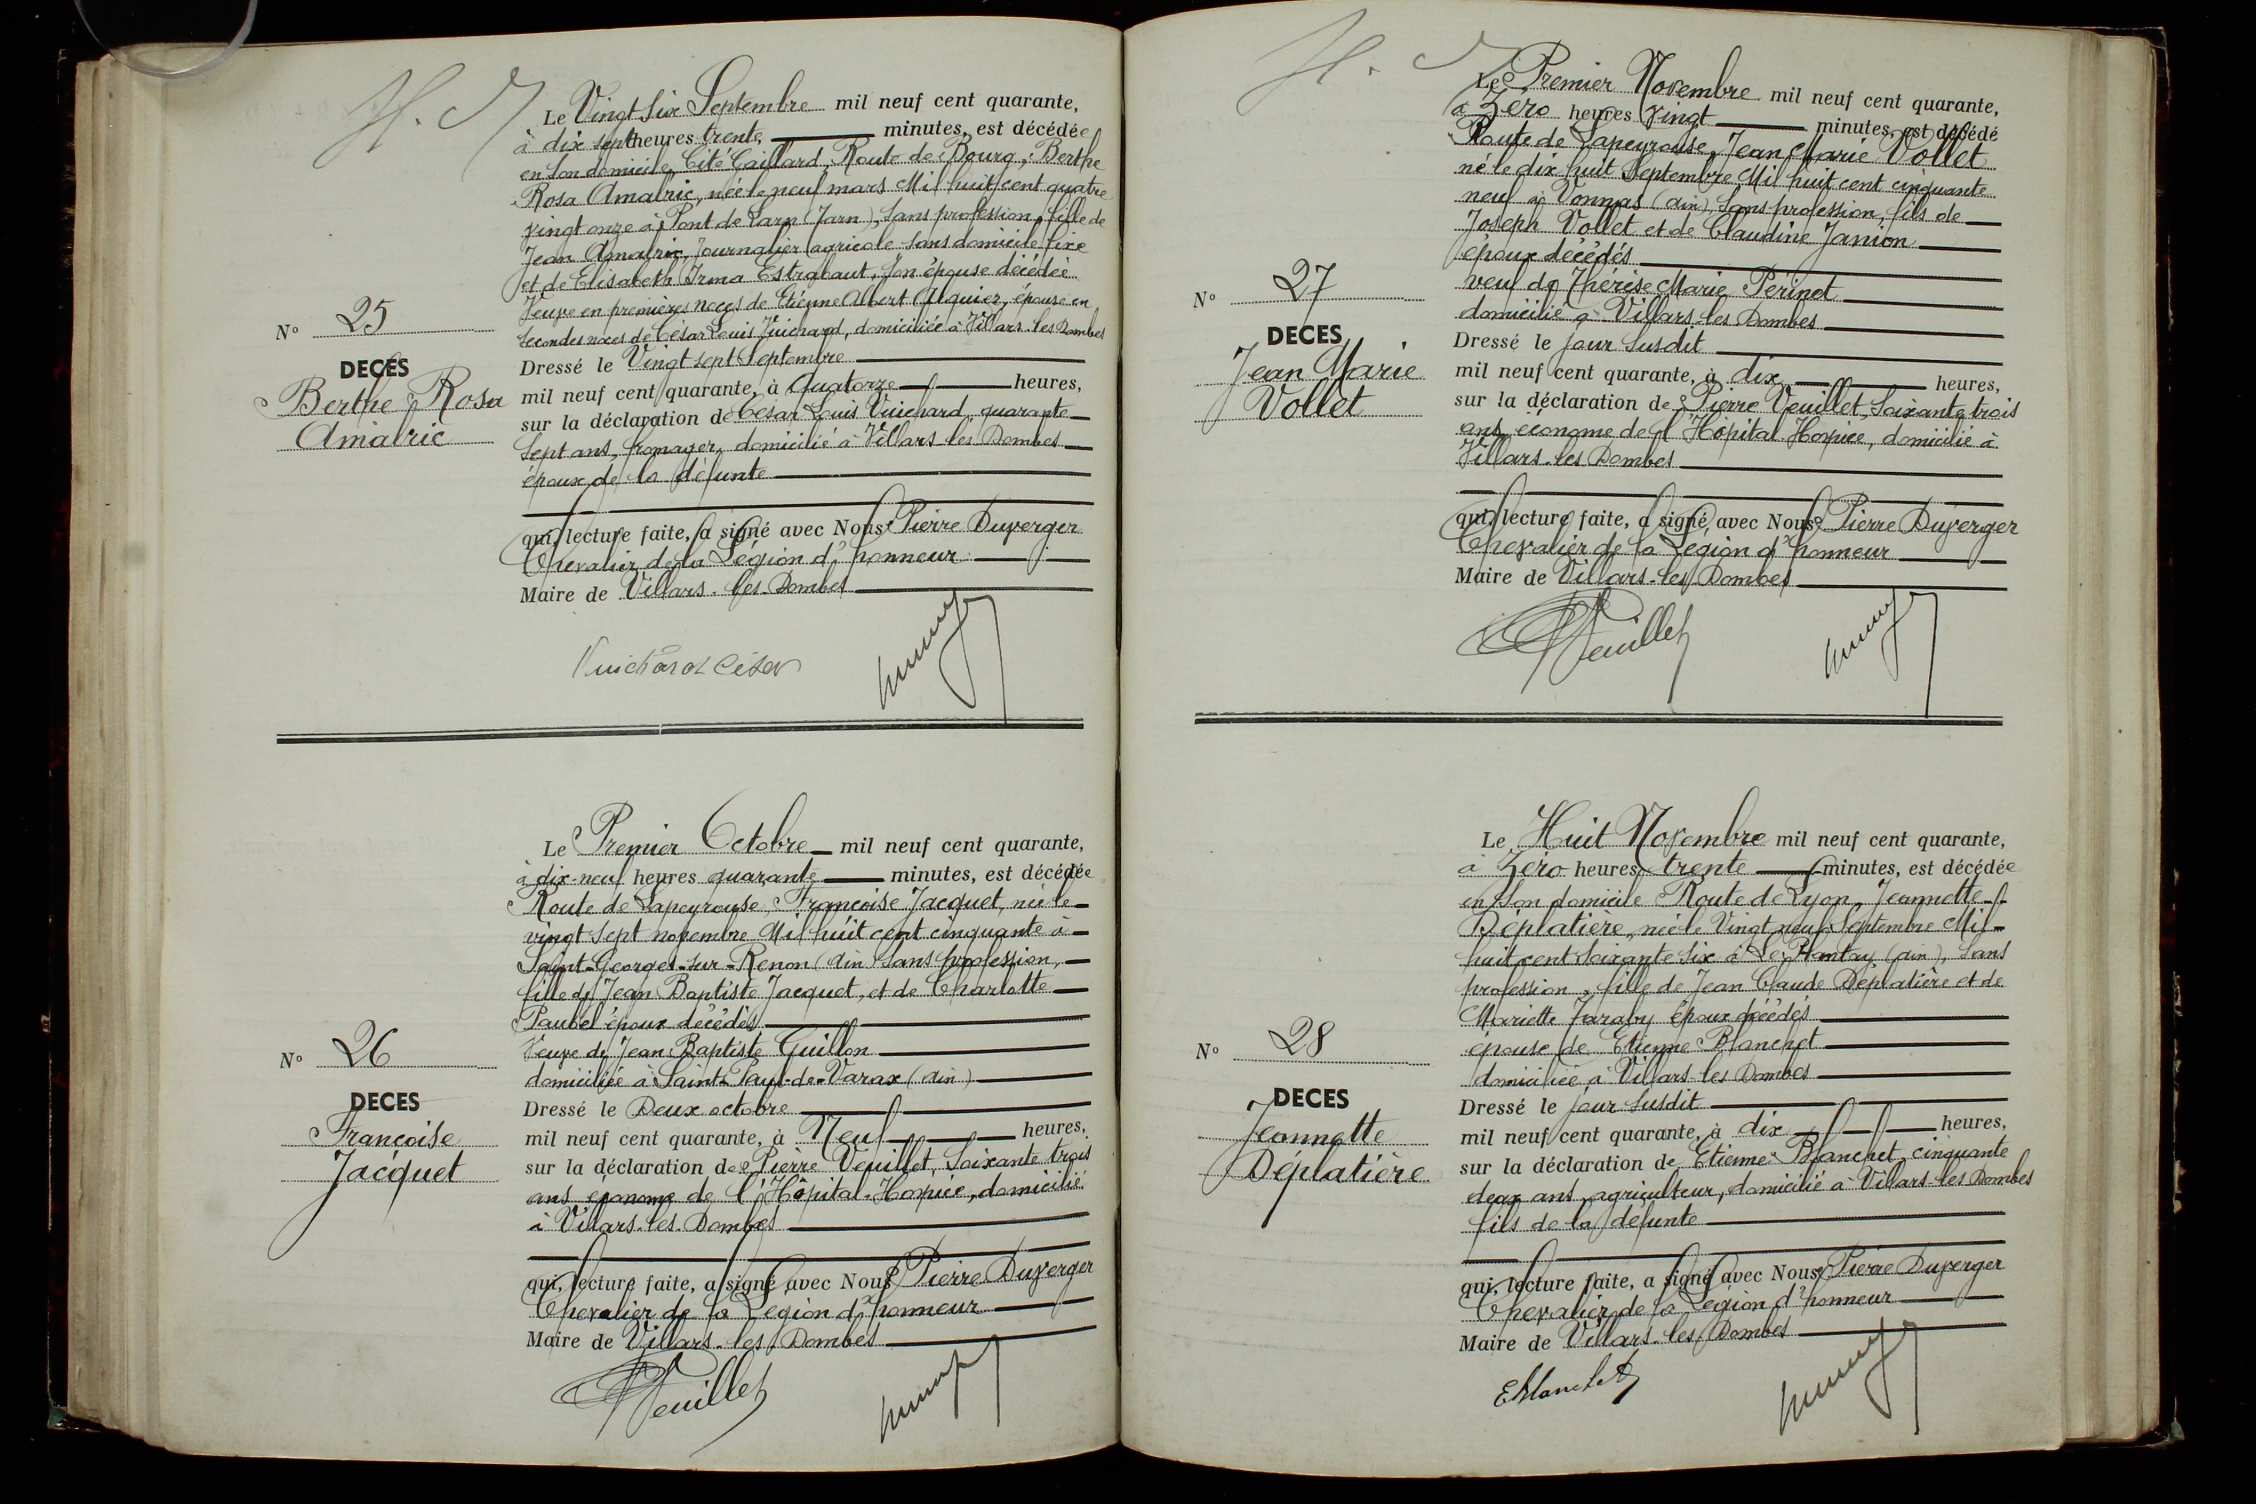 Le Vingt Six Septembre mil neuf cent quarante,
à dix sept heures trente, minutes, est décédée
en son domicile, Cité Gaillard, Route de Bourg, Berthe
Rosa Amalric, née le neuf mars Mil huit cent quatre
vingt onze à Pont de Larn (Tarn), sans profession, fille de
Jean Amalric, Journalier agricole sans domicile fixe
et de Elisabeth Irma Estrabaut, son épouse décédée
Veuve en premières noces de Etienne Albert Alquier, épouse en
secondes noces de César Louis Vuichard, domiciliée à Villars les Dombes
Dressé le Vingt sept Septembre
mil neuf cent quarante, à Quatorze heures,
sur la déclaration de César Louis Vuichard, quarante
sept ans, fromager, domicilié à Villars les Dombes
époux de la défunte
qui, lecture faite, a signé avec Nous Pierre Duverger
Chevalier de la Légion d'honneur
Maire de Villars-les-Dombes
Vuichard César
N° 25
DECES
Berthe Rosa
Amalric
Le Premier Octobre mil neuf cent quarante,
à dix-neuf heures quarante minutes, est décédée
Route de Lapeyrouse, Françoise Jacquet, née le
vingt sept novembre Mil huit cent cinquante à
Saint-Georges-sur-Renon (Ain) sans profession,
fille de Jean Baptiste Jacquet, et de Charlotte
Paubel époux décédés
Veuve de Jean Baptiste Guillon
domiciliée à Saint-Paul-de-Varax (Ain)
Dressé le Deux octobre
mil neuf cent quarante, à Neuf heures,
sur la déclaration de Pierre Veuillet, Soixante trois
ans économe de l'Hôpital-Hospice, domicilié
à Villars-les-Dombes
qui, lecture faite, a signé avec Nous Pierre Duverger
Chevalier de la Légion d'honneur
Maire de Villars-les-Dombes
PVeuillet
N° 26
DECES
Françoise
Jacquet
Le Premier Novembre mil neuf cent quarante,
à Zéro heures vingt minutes, est décédé
Route de Lapeyrouse, Jean Marie Vollet
né le dix huit Septembre Mil huit cent cinquante
neuf à Vonnas (Ain), sans profession, fils de
Joseph Vollet et de Claudine Janion
époux décédés
veuf de Thérèse Marie Périnet
domicilié à Villars les Dombes
Dressé le jour susdit
mil neuf cent quarante, à dix heures,
sur la déclaration de Pierre Veuillet, Soixante trois
ans, économe de l'Hôpital-Hospice, domicilié à
Villars-les-Dombes
qui, lecture faite, a signé avec Nous Pierre Duverger
Chevalier de la Légion d'honneur
Maire de Villars-les-Dombes
PVeuillet
N° 27
DECES
Jean Marie
Vollet
Le Huit Novembre mil neuf cent quarante,
à Zéro heures trente minutes, est décédée
en son domicile Route de Lyon, Jeannette
Déplatière, née le Vingt neuf Septembre Mil
huit cent soixante six à Le Plantay (Ain), sans
profession, fille de Jean Claude Déplatière et de
Mariette Jaraby époux décédés
épouse de Etienne Blanchet
domiciliée à Villars-les Dombes
Dressé le jour susdit
mil neuf cent quarante, à dix heures,
sur la déclaration de Etienne Blanchet, cinquante
deux ans, agriculteur, domicilié à Villars-les Dombes
fils de la défunte
qui, lecture faite, a signé avec Nous Pierre Duverger
Chevalier de la Légion d'honneur
Maire de Villars-les Dombes
EBlanchet
N° 28
DECES
Jeannette
Déplatière